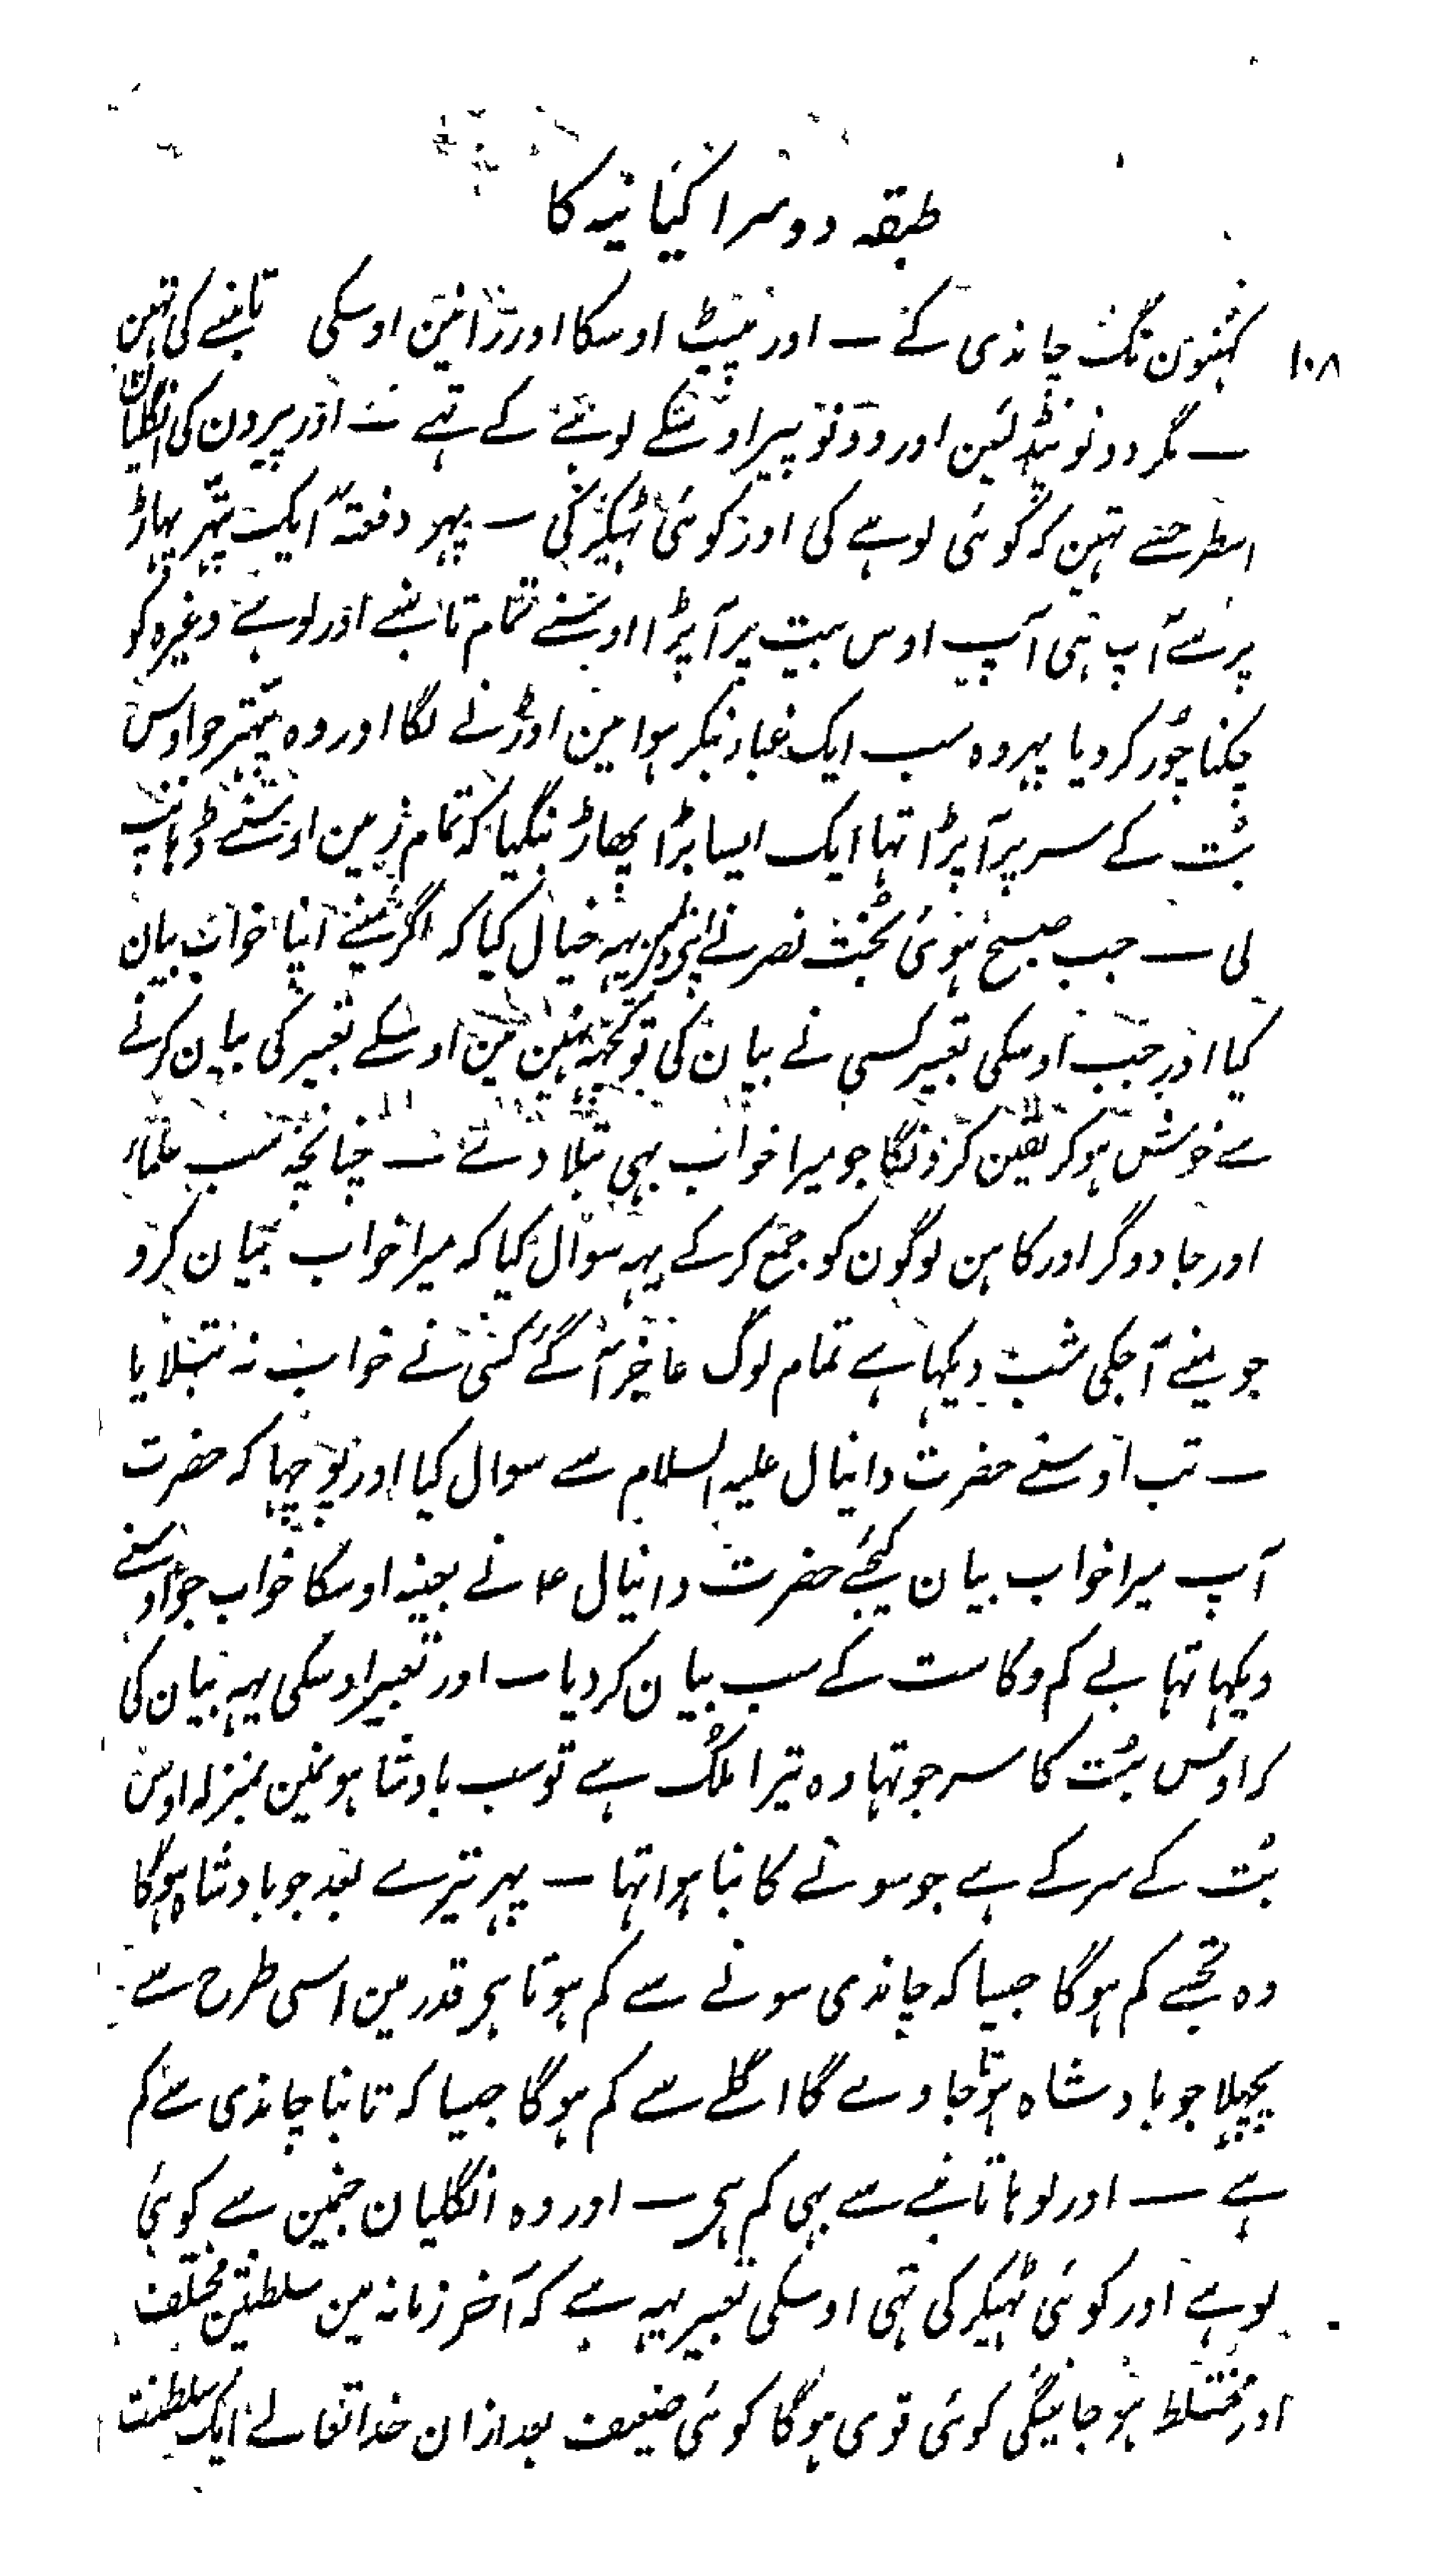 طبقہ دوسرا کیانیہ کا
۱۰۸
کہنیون تک چاندی کے ۔ اور پیٹ اوسکا اور رانین اوسکی تانبے کی تہین
۔ مگر دونو پنڈلئین اور دونو پیر اوسکے لوہے کے تہے ۔ اور پیرون کی انگلیان
اسطرحسے تہین کہ کوئی لوہے کی اور کوئی ٹہیکر کی ۔ پہر دفعتہً ایک پتہر پہاڑ
پر سے آپ ہی آپ اوس بیت پر آ پڑا اوسنے تمام تانبے اور لوہے وغیرہ کو
چکنا چور کر دیا پہر وہ سب ایک غبار بنکر ہوا مین اوڑنے لگا اور وہ پتہر جو اوس
بُت کے سر پر آ پڑا تہا ایک ایسا بڑا پہاڑ بنگیا کہ تمام زمین اوسنے ڈہانپ
لی ۔ جب صبح ہوئی بخت نصر نے اپنی دلمین یہہ خیال کیا کہ اگر مینے اپنا خواب بیان
کیا اور جب اوسکی تعبیر کسی نے بیان کی تو کچہہ نہین مین اوسکے تعبیر کی بیان کرنے
سے خوش ہوکر یقین کرونگا جو میرا خواب بہی بتلا دے ۔ چنانچہ سب علماء
اور جادوگر اور کاہن لوگون کو جمع کرکے یہہ سوال کیا کہ میرا خواب بیان کرو
جو مینے آجکی شب دیکہا ہے تمام لوگ عاجز آ گے کسی نے خواب نہ بتلایا
۔ تب اوسنے حضرت دانیال علیہ السلام سے سوال کیا اور پوچہا کہ حضرت
آپ میرا خواب بیان کیجئے حضرت دانیال ۴ نے بعینہ اوسکا خواب جو اوسنے
دیکہا تہا بے کم و کاست کے سب بیان کر دیا ۔ اور تعبیر اوسکی یہہ بیان کی
کہ اوس بُت کا سر جو تہا وہ تیرا ملک ہے تو سب بادشاہونمین بمنزلہ اوس
بُت کے سر کے ہے جو سونے کا بنا ہوا تہا ۔ پہر تیرے بعد جو بادشاہ ہوگا
وہ تجہسے کم ہوگا جیسا کہ چاندی سونے سے کم ہوتا ہی قدر مین اسی طرح سے
پچہلا جو بادشاہ ہوتا جاوے گا اگلے سے کم ہوگا جیسا کہ تانبا چاندی سے کم
ہے ۔ اور لوہا تانبے سے بہی کم ہی ۔ اور وہ انگلیان جنمین سے کوئی
لوہے اور کوئی ٹہیکر کی تہی اوسکی تعبیر یہہ ہے کہ آخر زمانہ مین سلطنتین مختلف
اور مختلط ہو جائینگی کوئی قوی ہوگا کوئی ضعیف بعد ازان خدا تعالے ایک سلطنت